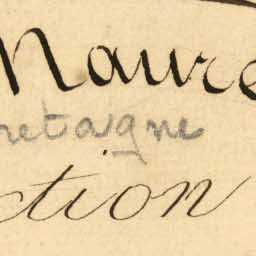 Maure
retagne
ction